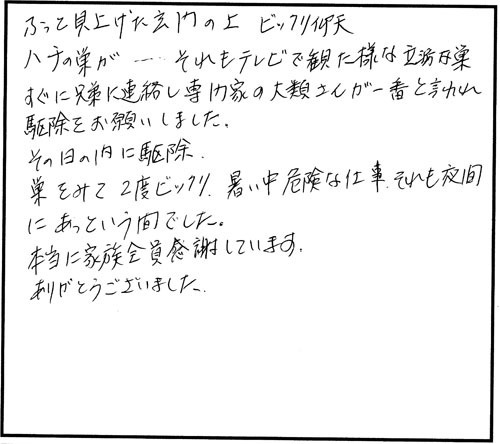 ふって見上げた玄関の上 ビックリ仰天
ハチの巣が…… それもテレビで観た様な立派な巣
すぐに兄弟に連絡し専門家の大類さんが一番と言われ
駆除をお願いしました。
その日の内に駆除.
巣をみて 2度ビックリ. 暑い中危険な仕事. それも夜間
に あっという間でした。
本当に家族全員感謝しています.
ありがとうございました.